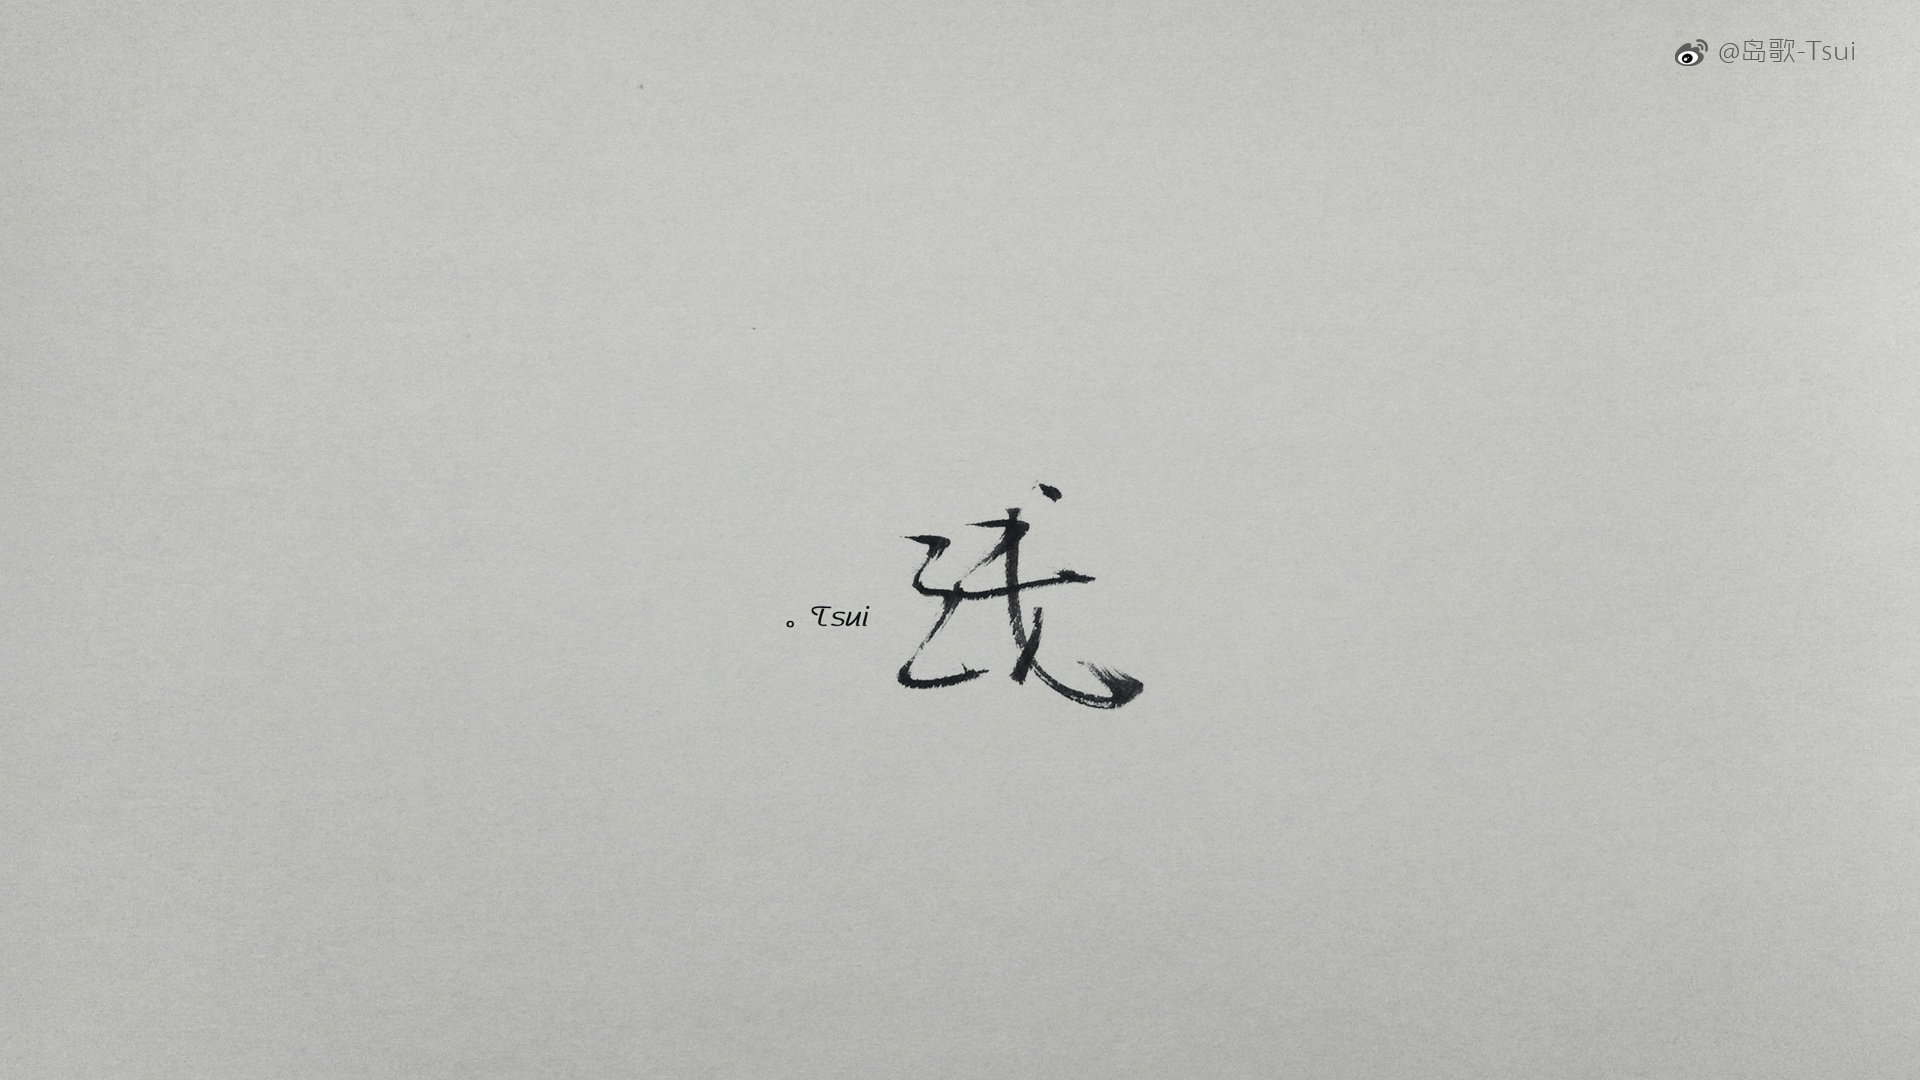 @岛歌-Tsui
。Tsui